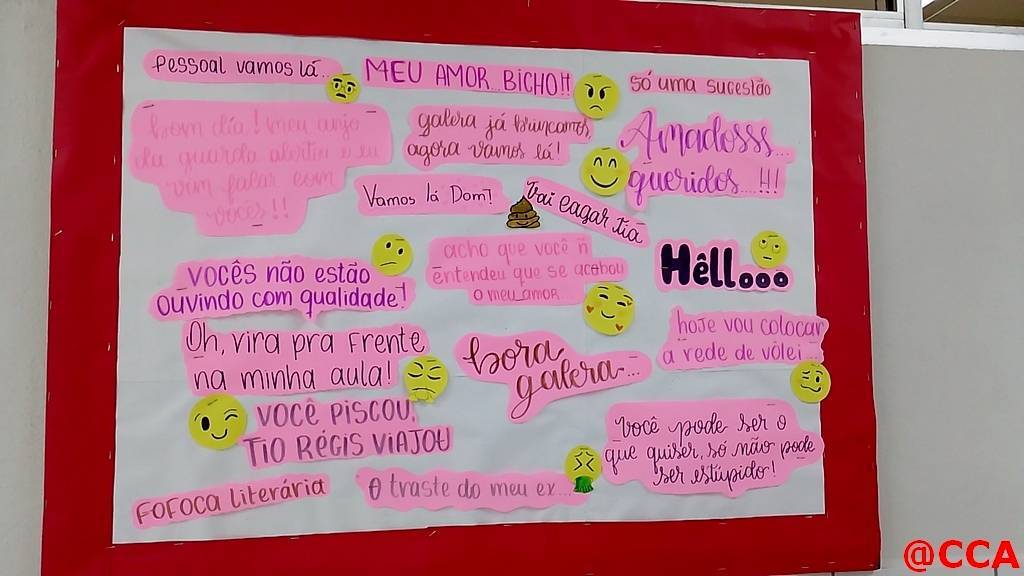 Pessoal vamos lá...
MEU AMOR...BICHO!!
Só uma sugestão
bom dia! meu anjo
da guarda alertou e eu
vim falar com
vocês!!
galera já brincamos,
agora vamos lá!
Amadosss...
queridos...!!!
Vamos lá Dom?
Vai cagar tia
vocês não estão
ouvindo com qualidade!
acho que você ñ
entendeu que se acabou
o meu amor
Hêll...
Oh, vira pra frente
na minha aula!
bora
galera...
hoje vou colocar
a rede de vôlei...
VOCÊ PISCOU,
TIO RÉGIS VIAJOU
Você pode ser o
que quiser, só não pode
ser estúpido!
FOFOCA literária
O traste do meu ex...
@CCA